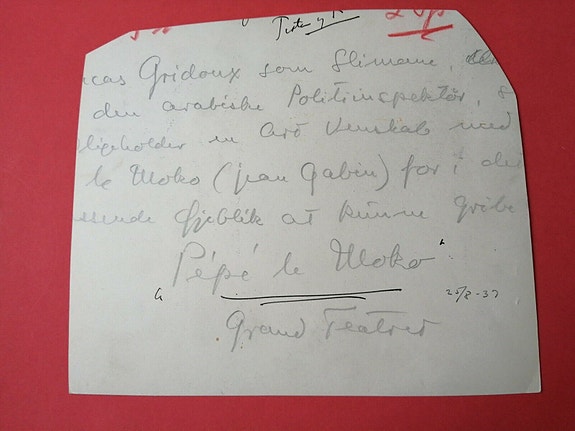 cas Gridoux som Slimane,
den arabiske Politiinspektör,
ligeholder en Art Venskab med
le Moko (Jean Gabin) for i de
Øjeblik at kunne gribe
"Pépé le Moko"
25/8-37
Grand Teatret